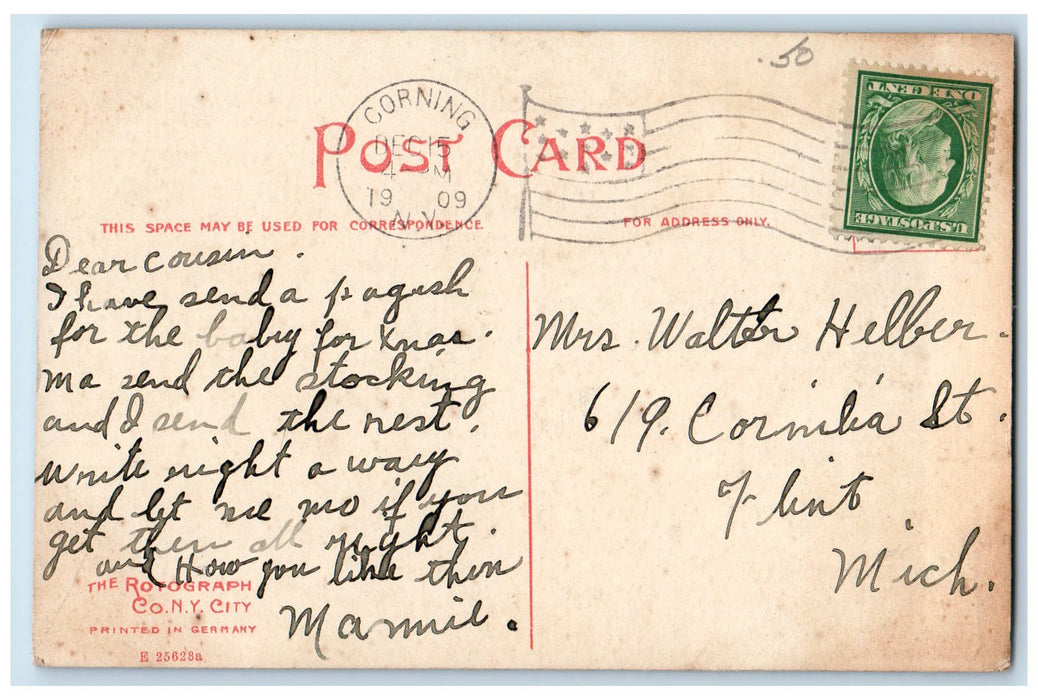 .50
CORNING
DEC 15
4 - PM
19 09
N.Y.
ONE CENT
U.S. POSTAGE
POST CARD
THIS SPACE MAY BE USED FOR CORRESPONDENCE
FOR ADDRESS ONLY.
Dear cousin.
I have send a
for the baby for Xmas.
Ma send the stocking
and I send the rest.
write right a way
and let me no if you
get them all right.
and How you like them
Mamie.
Mrs. Walter Helber.
619. Cornilia St.
Flint
Mich.
THE ROTOGRAPH
CO. N.Y. CITY
PRINTED IN GERMANY
E 25628a